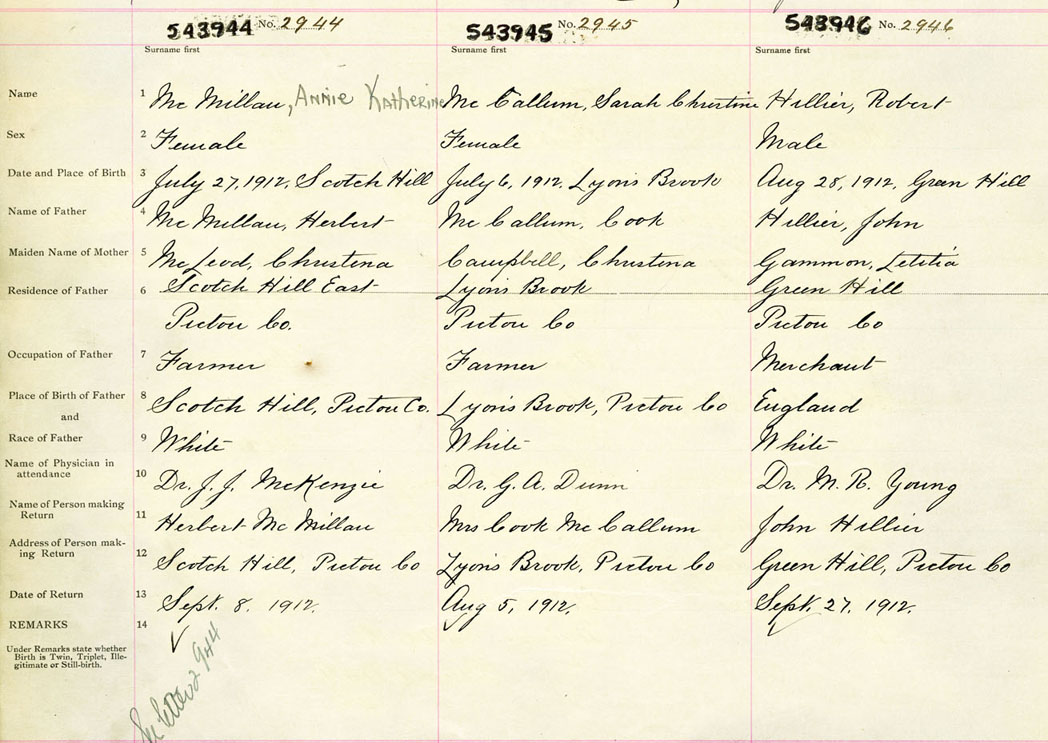 543944 No. 2944 543945 No. 2945 543946 No. 2946
Surname first Surname first Surname first
Name 1 Mc Millan, Annie Katherine Mc Callum, Sarah Christine Hillier, Robert
Sex 2 Female Female Male
Date and Place of Birth 3 July 27, 1912, Scotch Hill July 6, 1912, Lyons Brook Aug 28, 1912, Green Hill
Name of Father 4 Mc Millan, Herbert Mc Callum, Cook Hillier, John
Maiden Name of Mother 5 McLeod, Christena Campbell, Christena Gammon, Letitia
Residence of Father 6 Scotch Hill East Lyons Brook Green Hill
Pictou Co. Pictou Co Pictou Co
Occupation of Father 7 Farmer Farmer Merchant
Place of Birth of Father 8 Scotch Hill, Pictou Co. Lyons Brook, Pictou Co England
and
Race of Father 9 White White White
Name of Physician in
attendance 10 Dr. J. J. McKenzie Dr. G. A. Dunn Dr. M. R. Young
Name of Person making
Return 11 Herbert Mc Millan Mrs Cook Mc Callum John Hillier
Address of Person mak-
ing Return 12 Scotch Hill, Pictou Co Lyons Brook, Pictou Co Green Hill, Pictou Co
Date of Return 13 Sept. 8, 1912. Aug 5, 1912. Sept. 27, 1912.
REMARKS 14
Under Remarks state whether
Birth is Twin, Triplet, Ille-
gitimate or Still-birth.
See letter 2944